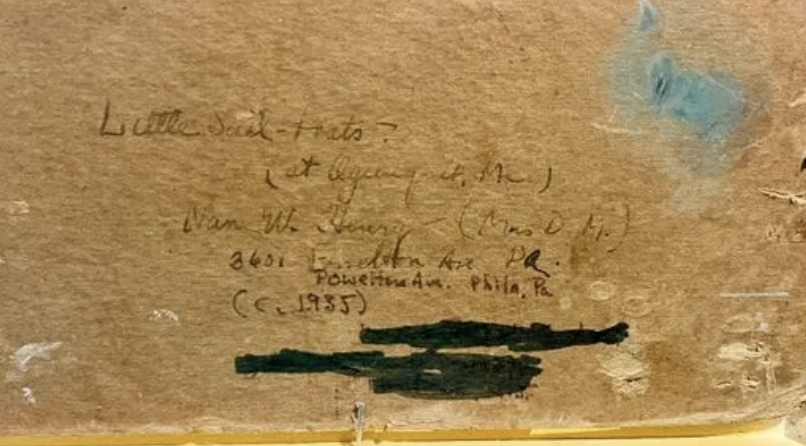 Little Sail-boats -
(at Ogunquit, Me.)
Nan W. Henry - (Mrs D. M.)
3601 Powelton Ave Pa.
Powelton Ave. Phila, Pa
(c. 1935)